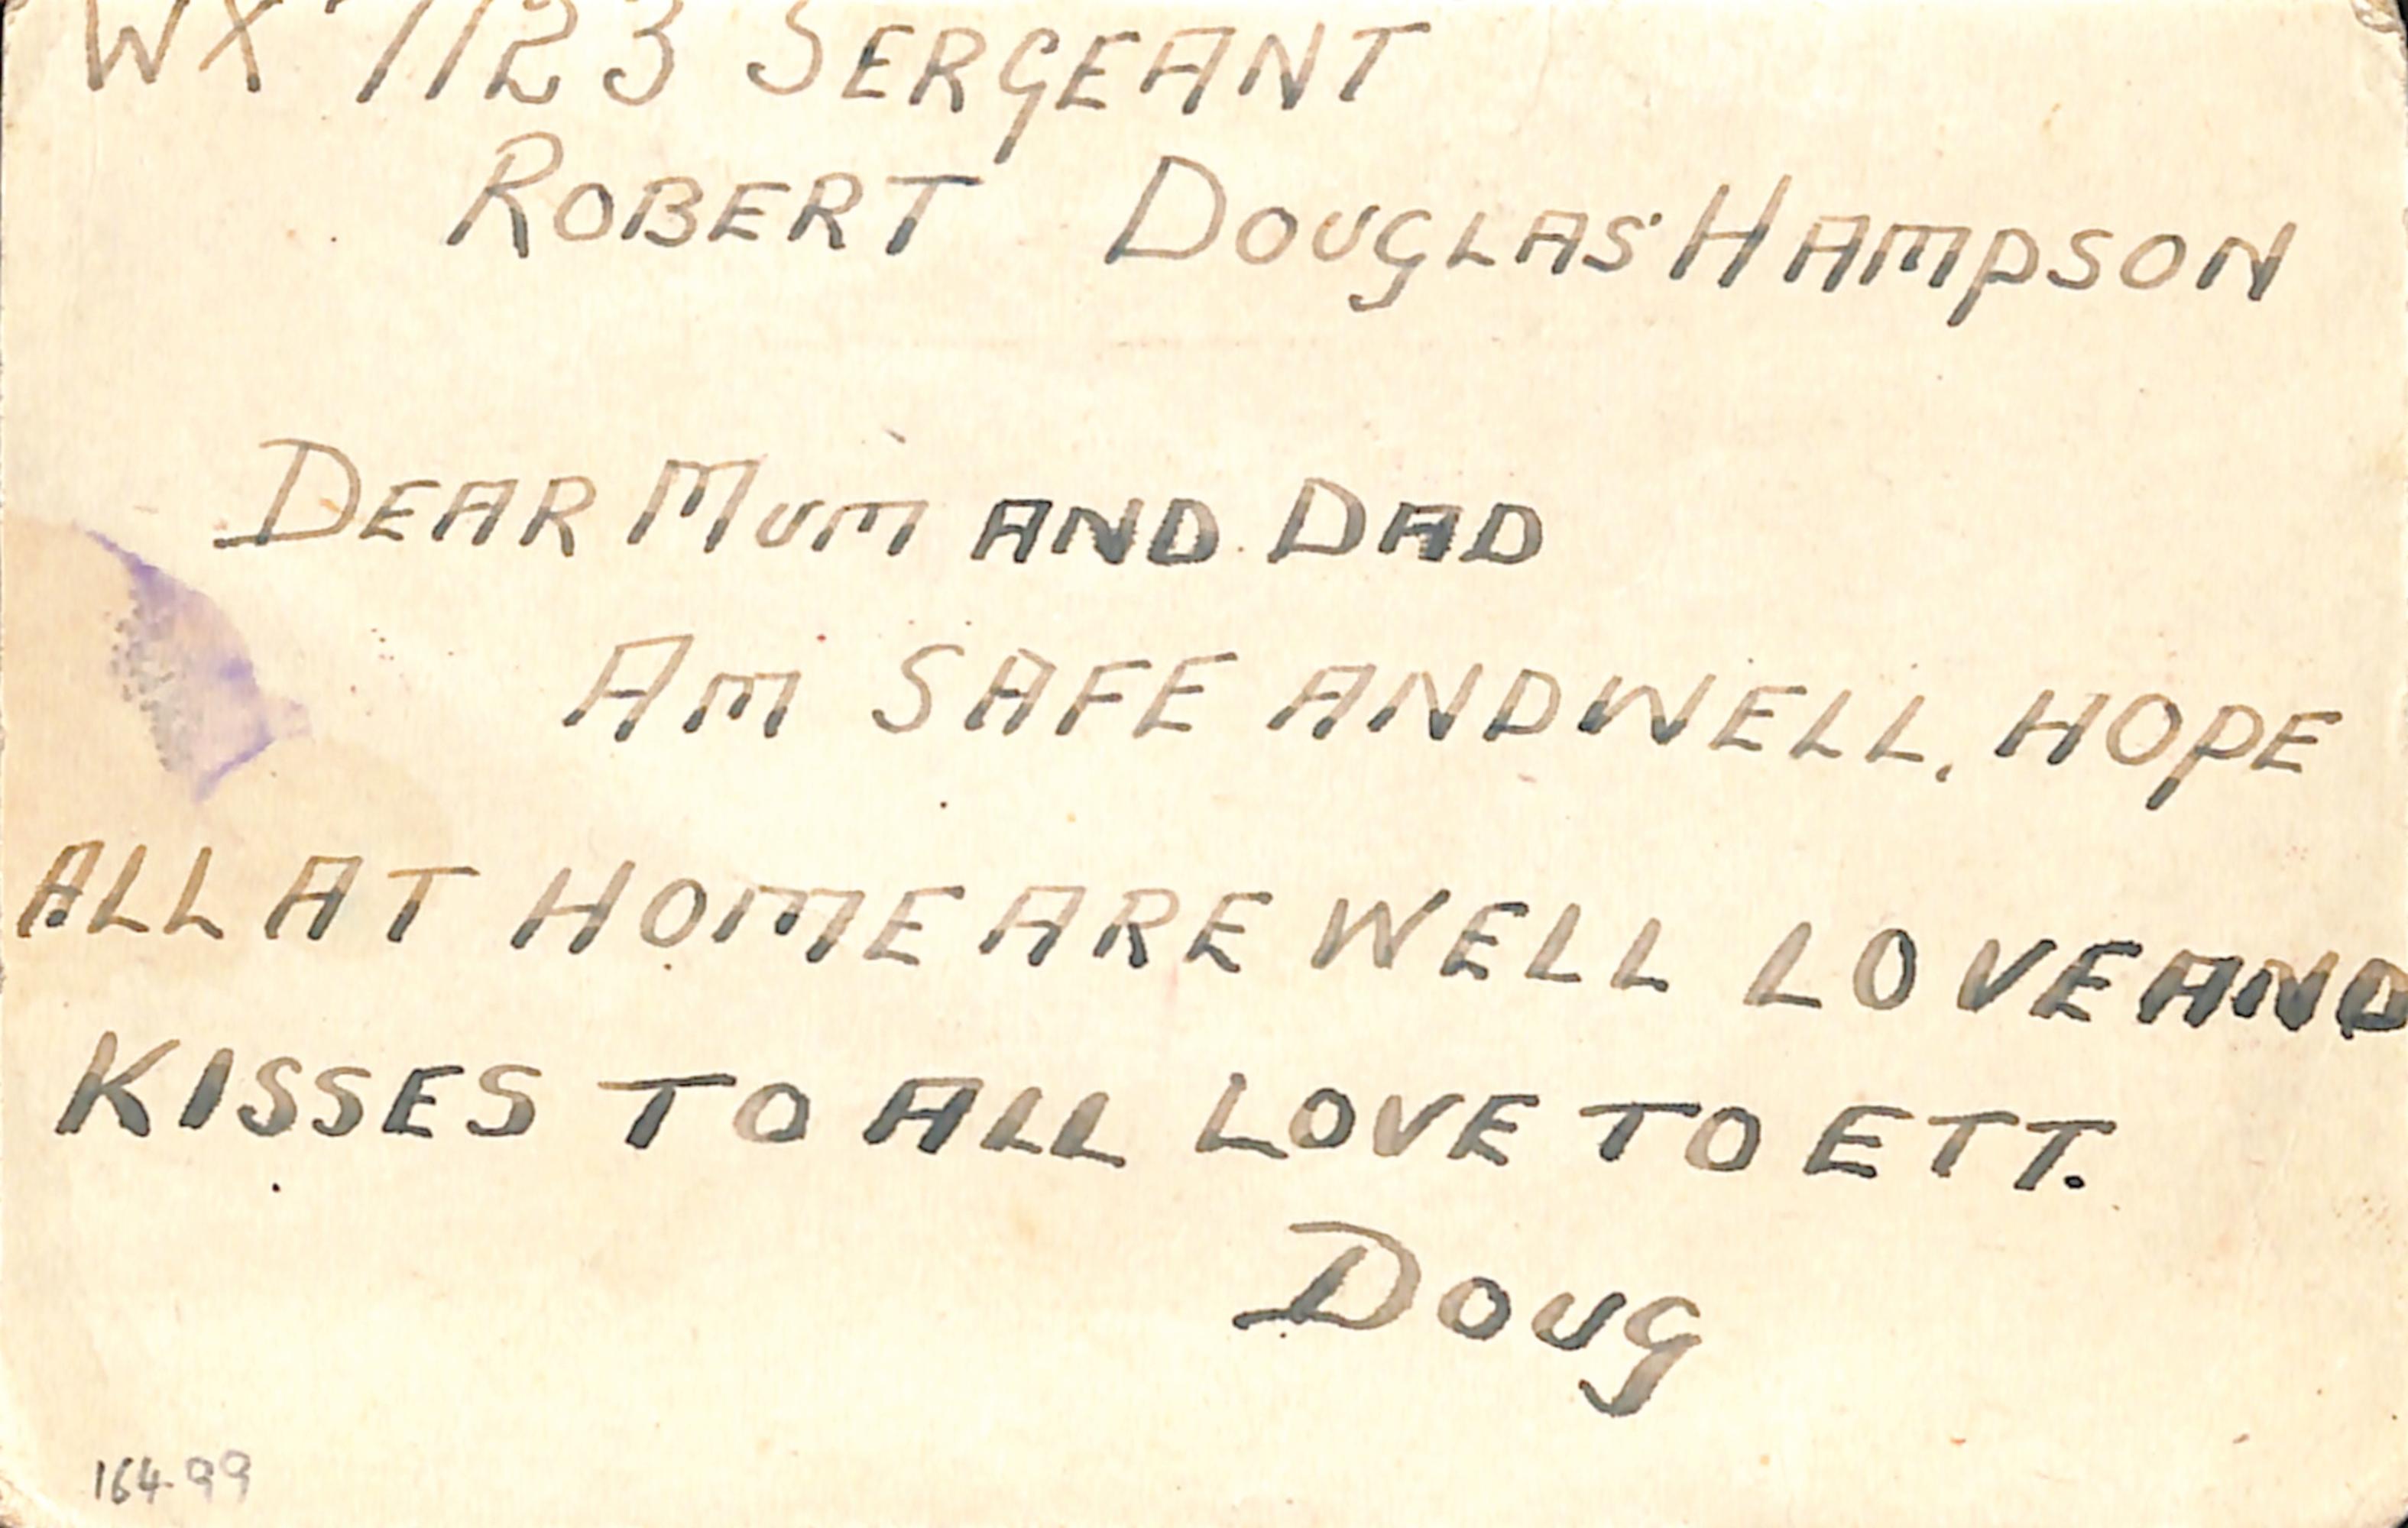 WX 7123 SERGEANT
ROBERT DOUGLAS HAMPSON
DEAR MUM AND DAD
AM SAFE AND WELL. HOPE
ALL AT HOME ARE WELL LOVE AND
KISSES TO ALL LOVE TO ETT.
DOUG
164.99